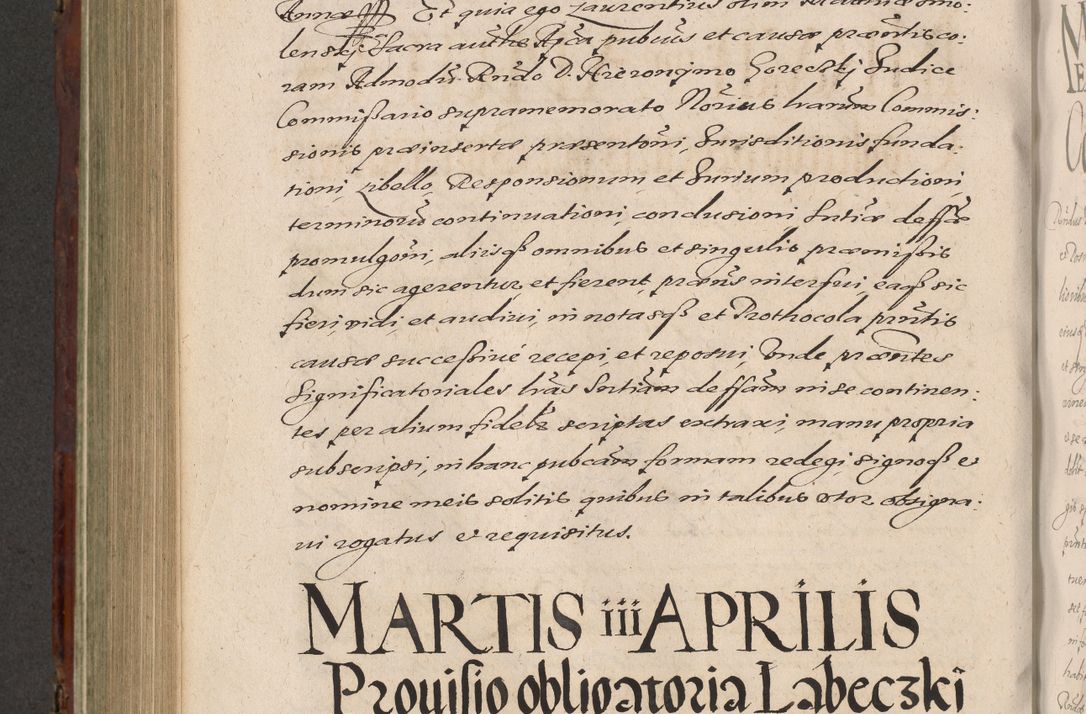 Annæ Et quia ego Laurentius olim
lenskj Sacra authe Aplca pubcus et causæ præntis co:
ram Admodu Rndo D. Hieronymo Goreckj Judice
Commissario supramemorato Norius harum Commis:
sionis præinsertæ præsentoni, Jurisditionis funda:
tioni, Libello, Responsionum et Jurium productioni,
terminoru continuationi, conclusioni Sntiæ deffæ
promulgoni, aliisqȝ omnibus et singulis præmissis
dum sic agerentur, et fierent, præns interfui, eaqȝ sic
fieri vidi, et audivi, in notasqȝ et Prothocola prntis
causæ successivé recepi, et reposui, Unde præntes
Significatoriales lras Sntiam deffam in se continen:
tes per alium fidelr scriptas extraxi, manu propria
subscripsi, in hanc pubcam formam redegi, signoqȝ et
nomine meis solitis quibus in talibus utor obsigna:
vi rogatus et requisitus.
MARTIS iii APRILIS
Prouisio obligatoria Labeczki